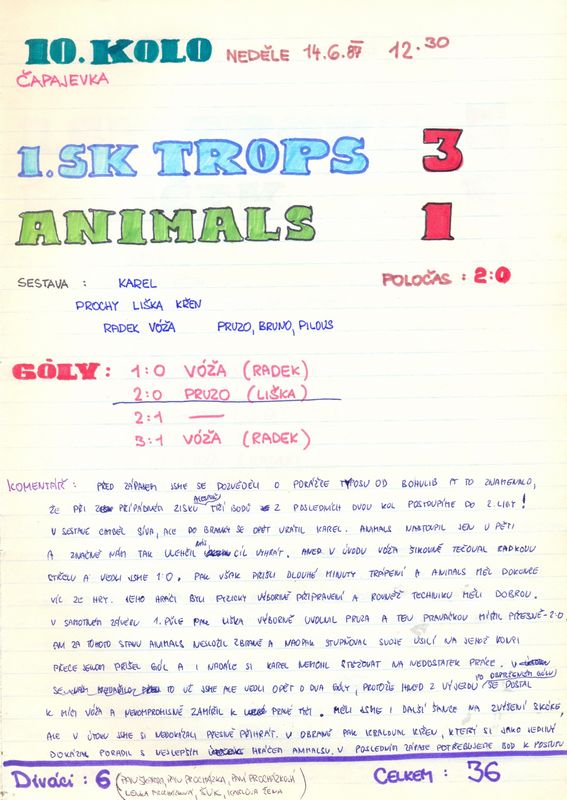 10. KOLO NEDĚLE 14.6.87 12.30
ČAPAJEVKA
1. SK TROPS 3
ANIMALS 1
SESTAVA : KAREL POLOČAS : 2:0
PROCHY LIŠKA KŘEN
RADEK VÓŽA PRUZO, BRUNO, PILOUS
GÓLY : 1:0 VÓŽA (RADEK)
2:0 PRUZO (LIŠKA)
2:1 —
3:1 VÓŽA (RADEK)
KOMENTÁŘ : PŘED ZÁPASEM JSME SE DOZVĚDĚLI O PORÁŽCE OD BOHULIB TO ZNAMENALO,
ŽE PŘI PŘÍPADNÉM ZISKU ALESPOŇ TŘÍ BODŮ Z POSLEDNÍCH DVOU KOL POSTOUPÍME DO 2. LIGY!
V SESTAVĚ CHYBĚL SÍVA, ALE DO BRANKY SE OPĚT VRÁTIL KAREL. ANIMALS NASTOUPIL JEN V PĚTI
A ZNAČNĚ NÁM TAK ULEHČIL NÁŠ CÍL VYHRÁT. HNED V ÚVODU VÓŽA ŠIKOVNĚ TEČOVAL RADKOVU
STŘELU A VEDLI JSME 1:0. PAK VŠAK PŘIŠLI DLOUHÉ MINUTY TRÁPENÍ A ANIMALS MĚL DOKONCE
VÍC ZE HRY. JEHO HRÁČI BYLI FYZICKY VÝBORNĚ PŘIPRAVENÍ A ROVNĚŽ TECHNIKU MĚLI DOBROU.
V SAMOTNÉM ZÁVĚRU 1. PŮLE PAK LIŠKA VÝBORNĚ UVOLNIL PRUZA A TEN PRAVAČKOU MÍŘIL PŘESNĚ - 2:0.
ANI ZA TOHOTO STAVU ANIMALS NESLOŽIL ZBRANĚ A NAOPAK STUPŇOVAL SVOJE ÚSILÍ NA JEHOŽ KONCI
PŘECE JENOM PŘIŠEL GÓL A I NADÁLE SI KAREL NEMOHL STĚŽOVAT NA NEDOSTATEK PRÁCE.
TO UŽ JSME ALE VEDLI OPĚT O DVA GÓLY, PROTOŽE HNED Z VÝJEZDU PO OBDRŽENÉM GÓLU SE DOSTAL
K MÍČI VÓŽA A NEKOMPROMISNĚ ZAMÍŘIL K PRAVÉ TYČI. MĚLI JSME I DALŠÍ ŠANCE NA ZVÝŠENÍ SKÓRE,
ALE V ÚTOKU JSME SI NEDOKÁZALI PŘESNĚ PŘIHRÁT. V OBRANĚ PAK KRALOVAL KŘEN, KTERÝ SI JAKO JEDINÝ
DOKÁZAL PORADIT S NEJLEPŠÍM HRÁČEM ANIMALSU. V POSLEDNÍM ZÁPASE POTŘEBUJEME BOD K POSTUPU
Diváci : 6 (PANÍ PROCHÁZKOVÁ CELKEM : 36